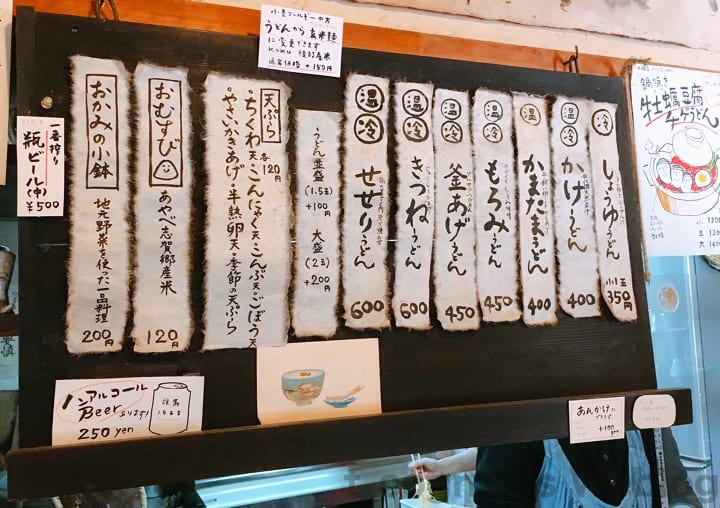 小麦アレルギーの方
うどんから玄米麺
に変更できます
通常価格 +150円
冷
しょうゆうどん
小玉
350円
温
冷
かけうどん
400
温
冷
かまたまうどん
400
温
冷
もろみうどん
450
温
冷
釜あげうどん
450
温
冷
きつねうどん
600
温
冷
せせりうどん
600
うどん並盛
(1.5玉)
+100円
大盛
(2玉)
+200円
天ぷら
各120円
・ちくわ天・こんにゃく天・こんぶ天・ごぼう天
・やさいかきあげ・半熟卵天・季節の天ぷら
おむすび
あやべ志賀郷産米
120
おかみの小鉢
地元野菜を使った一品料理
200円
一番搾り
瓶ビール(中)
¥500
ノンアルコール
Beerあります!
250 yen
あんかけに
できます
+100
yen
鍋焼き
牡蠣豆腐
チゲうどん